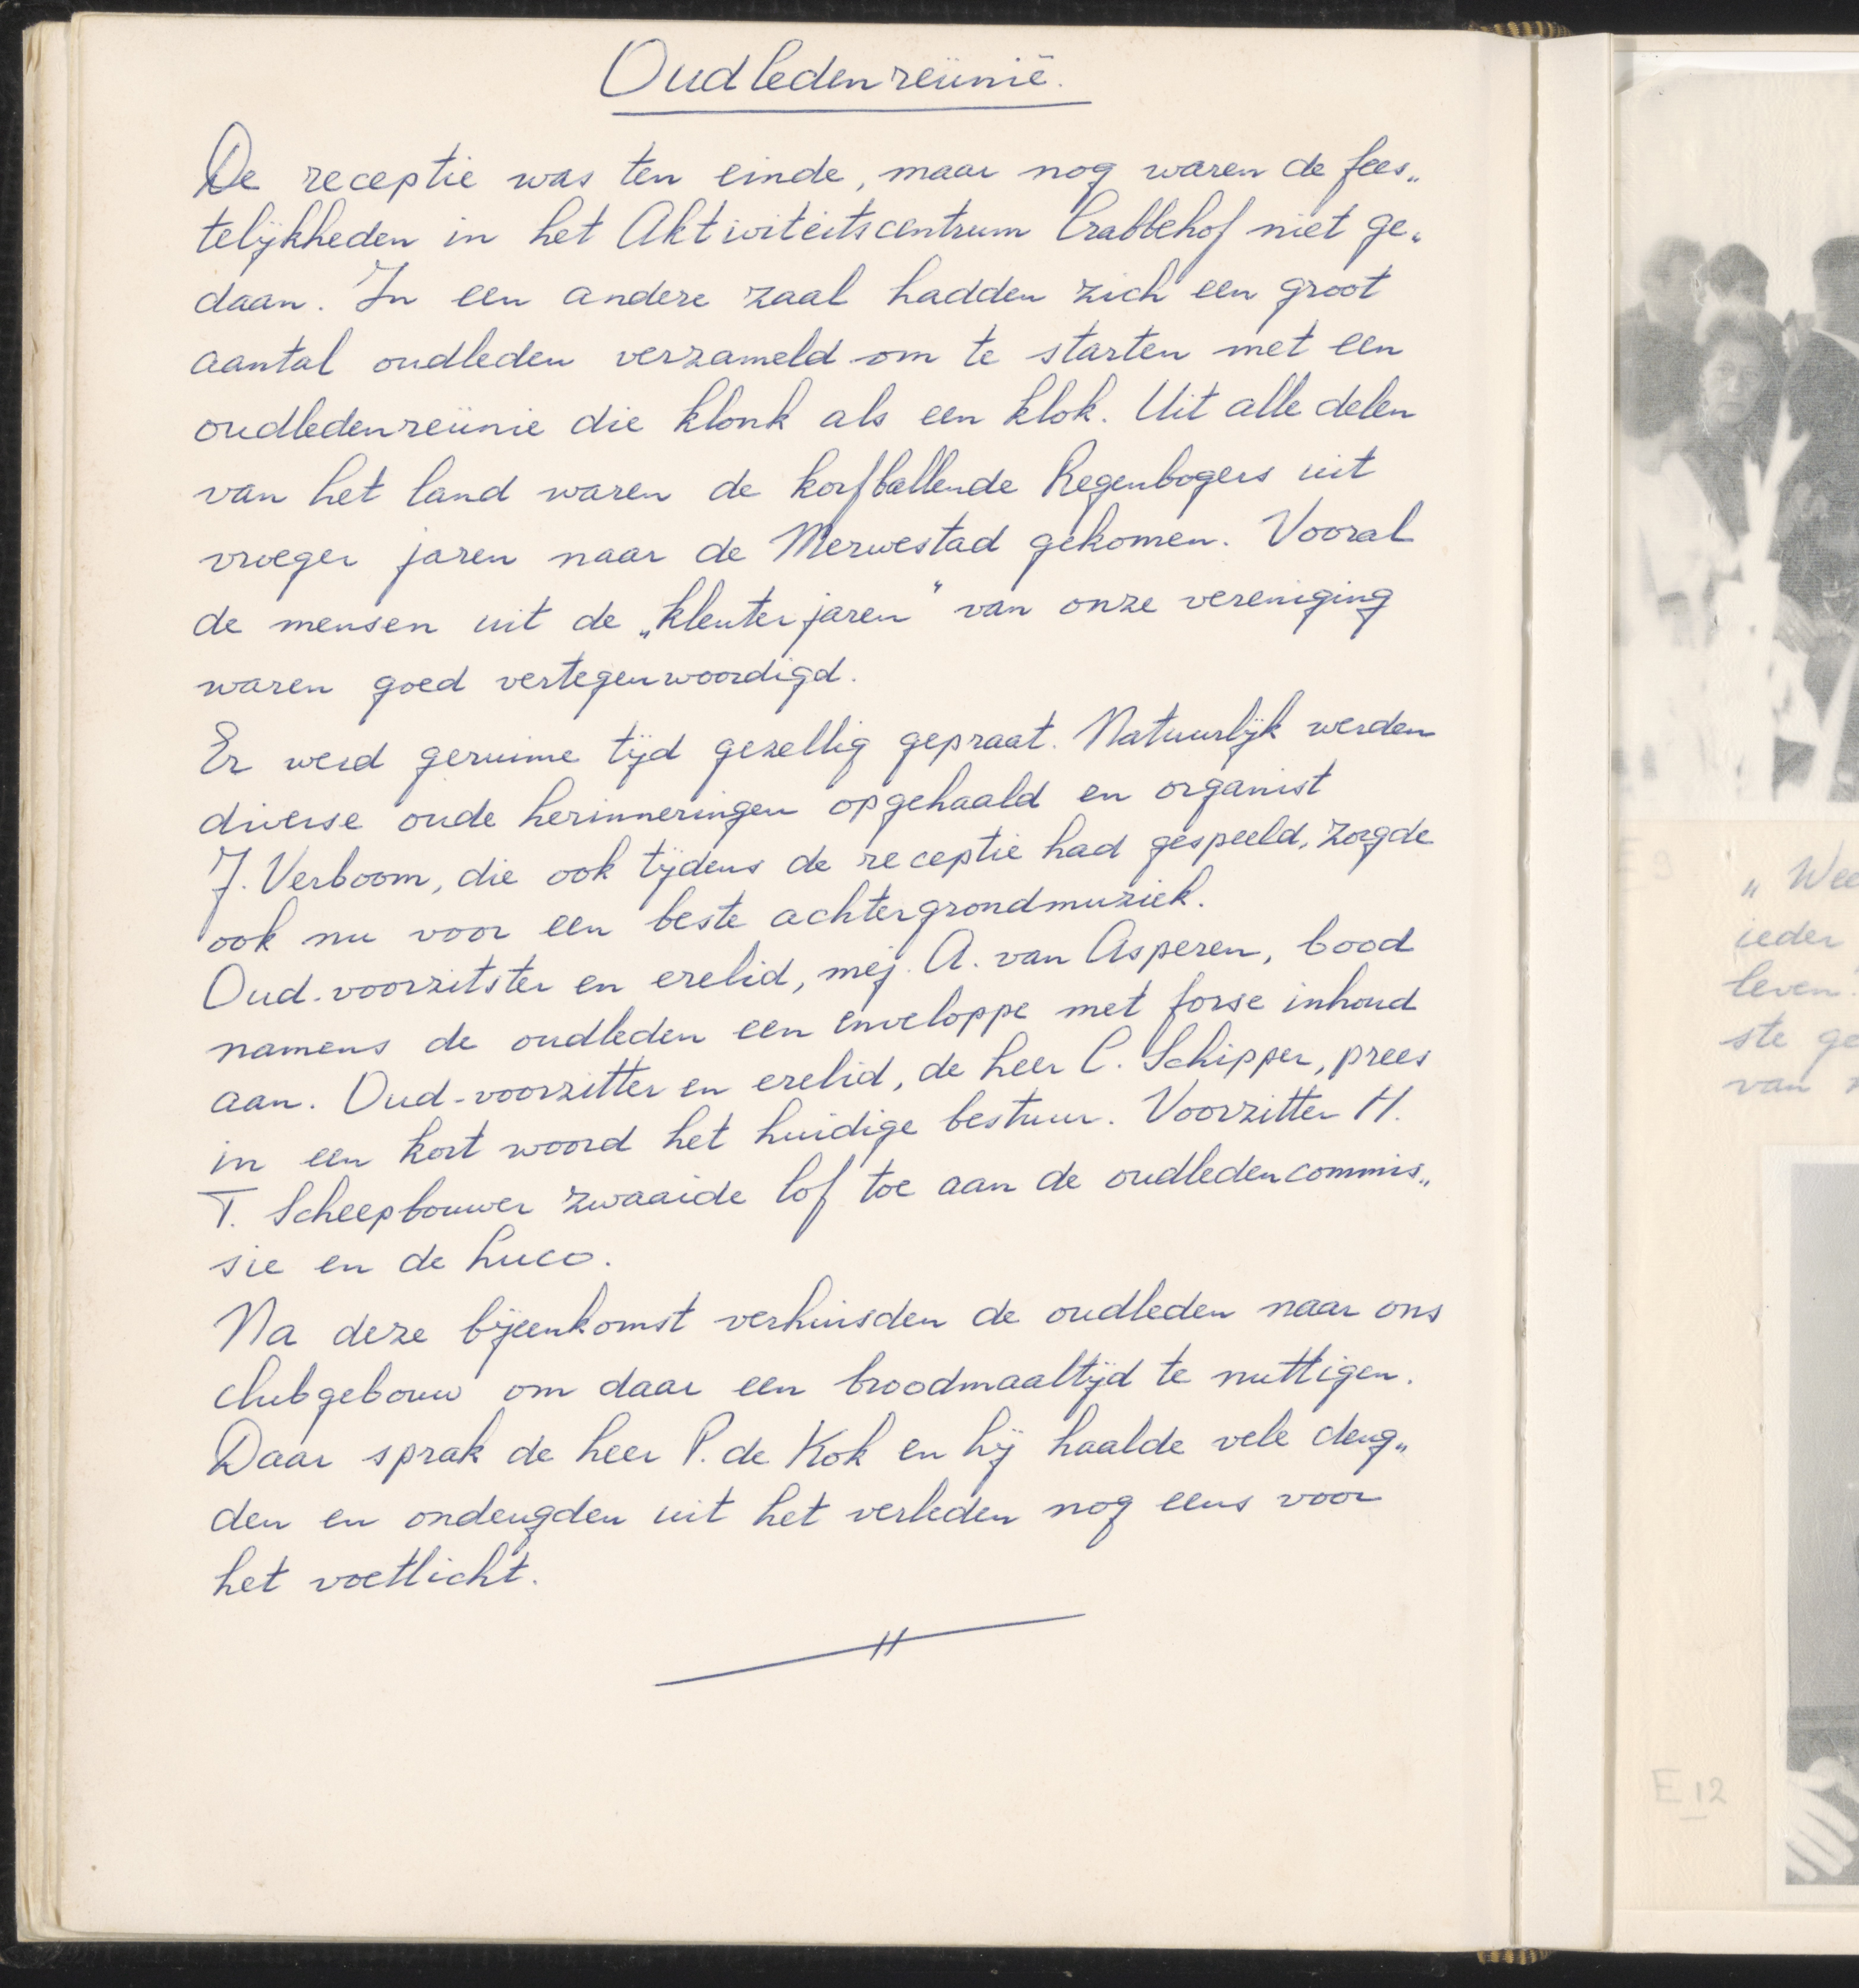 Oudledenreünie.
De receptie was ten einde, maar nog waren de fees„
telijkheden in het Aktiviteitscentrum Crabbehof niet ge„
daan. In een andere zaal hadden zich een groot
aantal oudleden verzameld om te starten met een
oudledenreünie die klonk als een klok. Uit alle delen
van het land waren de korfballende Regenbogers uit
vroeger jaren naar de Merwestad gekomen. Vooral
de mensen uit de „kleuterjaren" van onze vereniging
waren goed vertegenwoordigd.
Er werd geruime tijd gezellig gepraat. Natuurlijk werden
diverse oude herinneringen opgehaald en organist
J. Verboom, die ook tijdens de receptie had gespeeld, zorgde
ook nu voor een beste achtergrondmuziek.
Oud-voorzitster en erelid, mej. A. van Asperen, bood
namens de oudleden een enveloppe met forse inhoud
aan. Oud-voorzitter en erelid, de heer C. Schipper, prees
in een kort woord het huidige bestuur. Voorzitter H.
T. Scheepbouwer zwaaide lof toe aan de oudledencommis„
sie en de luco.
Na deze bijeenkomst verhuisden de oudleden naar ons
clubgebouw om daar een broodmaaltijd te nuttigen.
Daar sprak de heer P. de Kok en hij haalde vele deug„
den en ondeugden uit het verleden nog eens voor
het voetlicht.
E9
„Wee
ieder
leven.
ste ge
van
E12